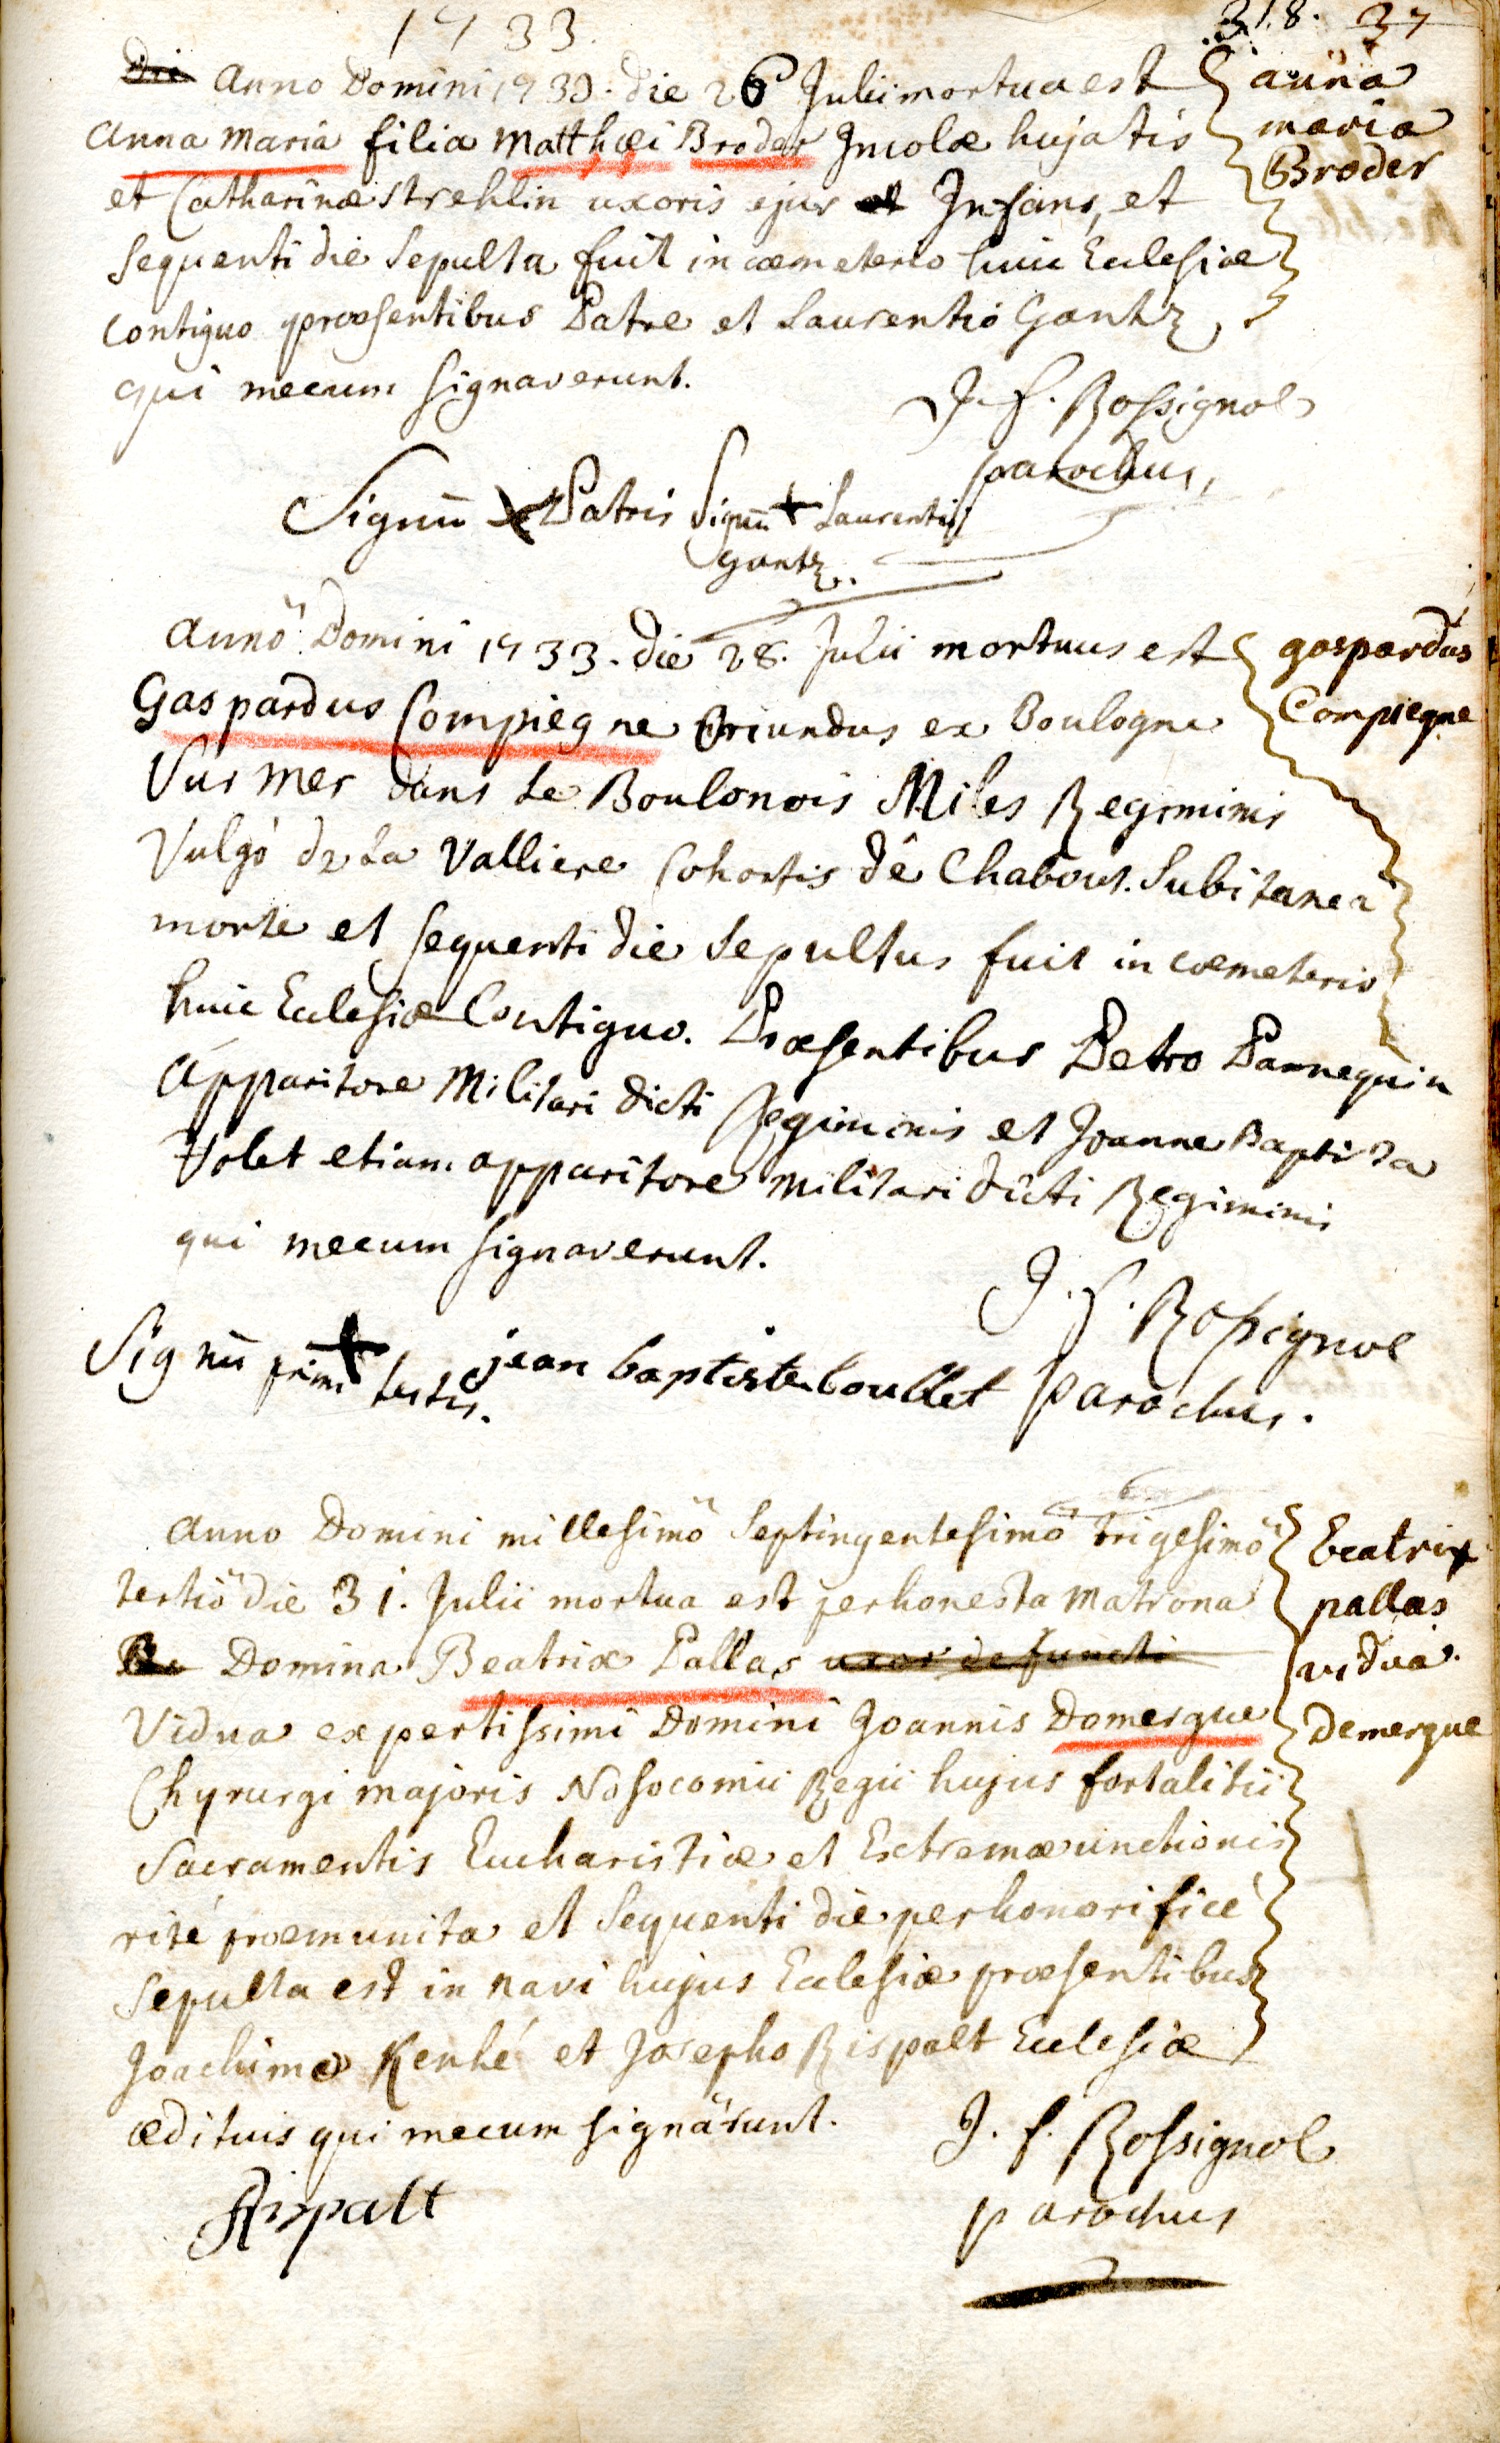 1733.
318. 37
Die Anno Domini 1733. die 26 Julii mortua est
Anna Maria filia Matthæi Broder Incolæ hujatis
et Catharinæ Strehlin uxoris ejus et Infans, et
sequenti die sepulta fuit in cœmeterio huic Eclesiæ
contiguo præsentibus Patre et Laurentio Gantz,
qui mecum signaverunt.
anna
maria
Broder
J. f. Rossignol
parochus,
Signū + Patris Signū + Laurentii
Gantz.
Anno Domini 1733. die 28. Julii mortuus est
Gaspardus Compiegne Oriundus ex Boulogne
Sur Mer dans Le Boulonois Miles Regiminis
Vulgò de La Valliere Cohortis dê Chabout. Subitanea
morte et sequenti die Sepultus fuit in cœmeterio
huic Eclesiæ Contiguo. Præsentibus Petro Pannequin
Apparitore Militari dicti Regiminis et Joanne Baptista
Volet etiam apparitore militari dicti Regiminis
qui mecum signaverunt.
gaspardus
Compiegne
J. f. Rossignol
parochus.
Signū + primi testis.
jean baptiste boullet
Anno Domini millesimo Septingentesimo trigesimo
tertio die 31. Julii mortua est perhonesta Matrona
Be Domina Beatrix Pallas uxor defuncti
Vidua expertissimi Domini Joannis Domergue
Chyrurgi majoris Nosocomii Regii hujus fortalitii
Sacramentis Eucharistiæ et Extremæ unctionis
rité præmunita et sequenti die perhonorificé
Sepulta est in navi hujus Eclesiæ præsentibus
Joachimo Kenhé et Josepho Rispalt Eclesiæ
ædituis qui mecum signârunt.
Beatrix
pallas
vidua.
Demergue
J. f. Rossignol
parochus
Rispalt